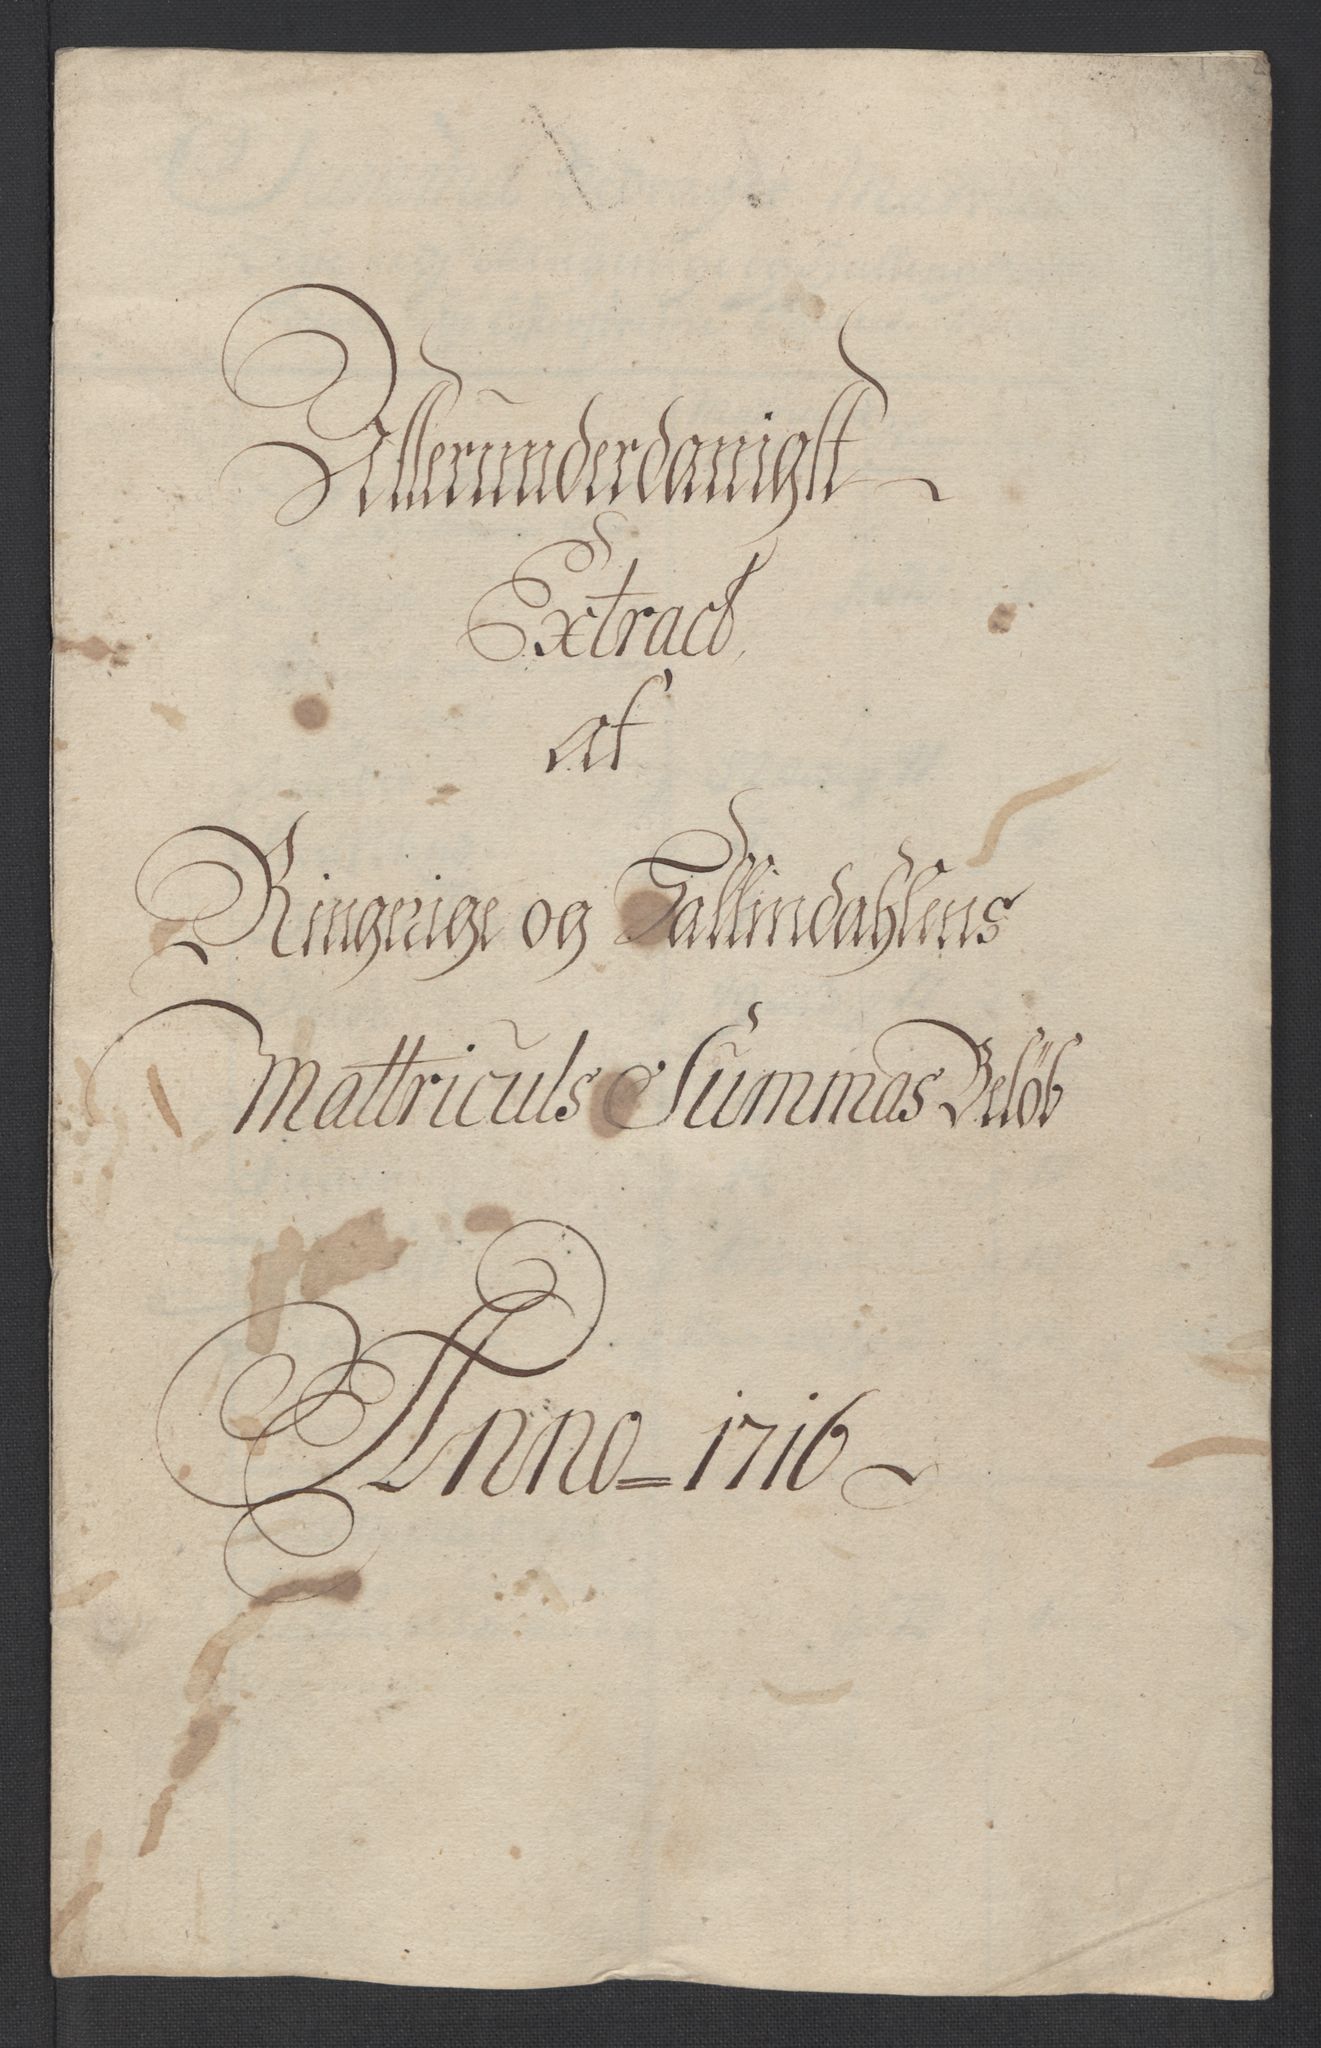 Allerunderdanigst
Extract
af
Ringerige og Hallindahlens
Mattriculs Summas Beløb
Anno = 1716